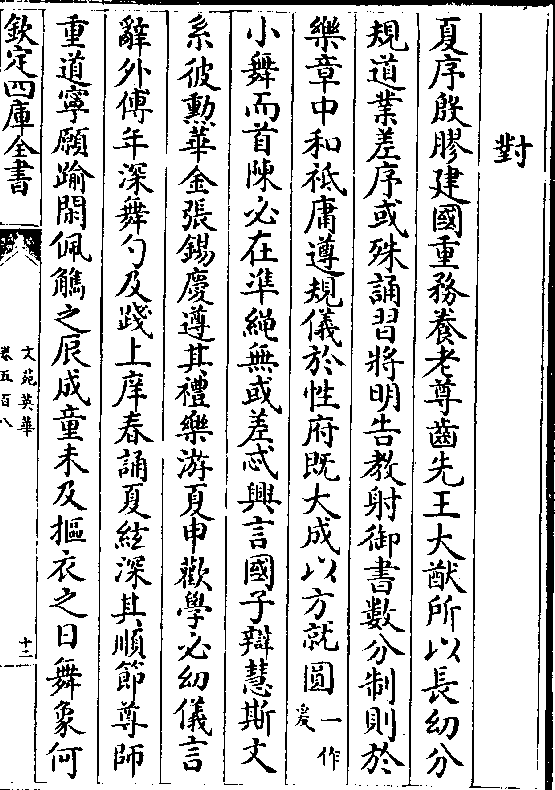 對
夏序殷膠建國重務養老尊齒先王大猷所以長幼分
規道業差序或殊誦習將明告教射御書數分制則於
樂章中和祗庸遵規儀於性府既大成以方就圓一作爰
小舞而首陳必在準繩無或差忒興言國子辯慧斯文
系彼勲華金張錫慶遵其禮樂游夏申歡學必幼儀言
辭外傅年深舞勺及踐上庠春誦夏絃深其順節尊師
重道寧願踰閑佩觿之辰成童未及摳衣之日舞象何
欽定四庫全書
文苑英華
卷五百八
十二